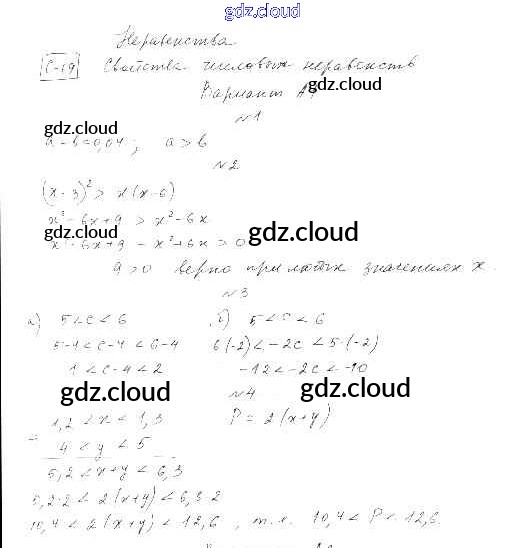 gdz.cloud
Неравенства
С-19 Свойства числовых неравенств
Вариант А1
№1
gdz.cloud gdz.cloud
a - b = 0,04 ; a > b
№2
(x - 3)² > x(x - 6)
x² - 6x + 9 > x² - 6x
gdz.cloud gdz.cloud
x² - 6x + 9 - x² + 6x > 0
9 > 0 верно при любых значениях x.
№3
а) 5 < c < 6 б) 5 < c < 6
5-4 < c-4 < 6-4 6·(-2) < -2c < 5·(-2)
1 < c-4 < 2 -12 < -2c < -10
gdz.cloud gdz.cloud
№4
1,2 < x < 1,3 P = 2(x+y)
4 < y < 5
5,2 < x+y < 6,3
5,2·2 < 2(x+y) < 6,3·2
10,4 < 2(x+y) < 12,6 , т.е. 10,4 < P < 12,6.